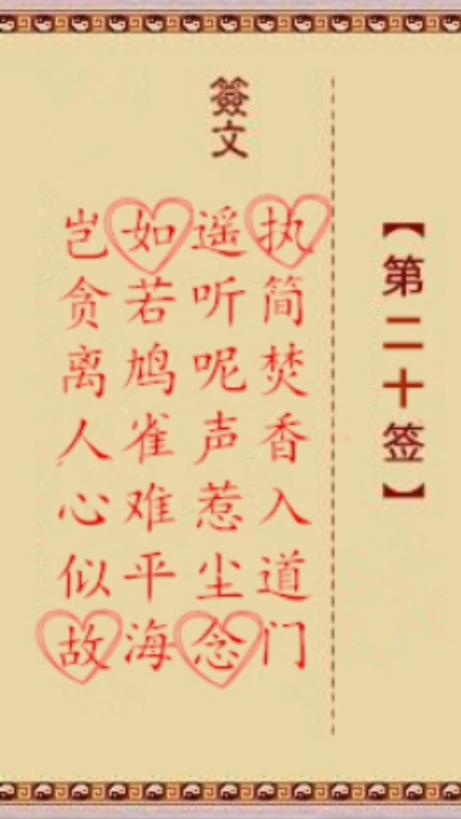 【第二十签】
簽文
执简焚香入道门
遥听呢声惹尘念
如若鸠雀难平海
岂贪离人心似故